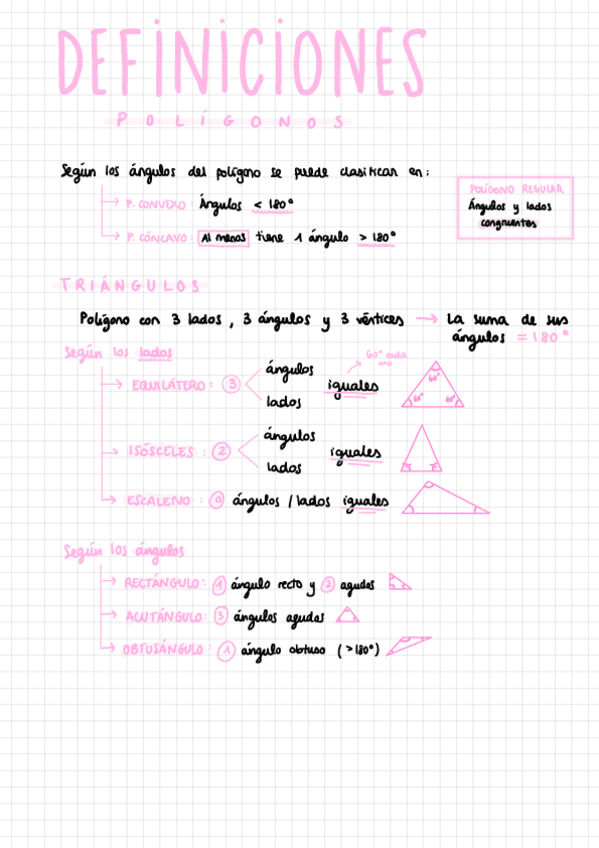 DEFINICIONES
POLÍGONOS
Según los ángulos del polígono se puede clasificar en:
P. CONVEXO: Ángulos < 180°
P. CÓNCAVO: Al menos tiene 1 ángulo > 180°
POLÍGONO REGULAR
Ángulos y lados
congruentes
TRIÁNGULOS
Polígono con 3 lados, 3 ángulos y 3 vértices → La suma de sus
ángulos = 180°
Según los lados
60° cada
uno
EQUILÁTERO: 3 ángulos
lados
iguales
60°
60° 60°
ISÓSCELES: 2 ángulos
lados
iguales
ESCALENO: 0 ángulos / lados iguales
Según los ángulos
RECTÁNGULO: 1 ángulo recto y 2 agudos
ACUTÁNGULO: 3 ángulos agudos
OBTUSÁNGULO: 1 ángulo obtuso (>180°)